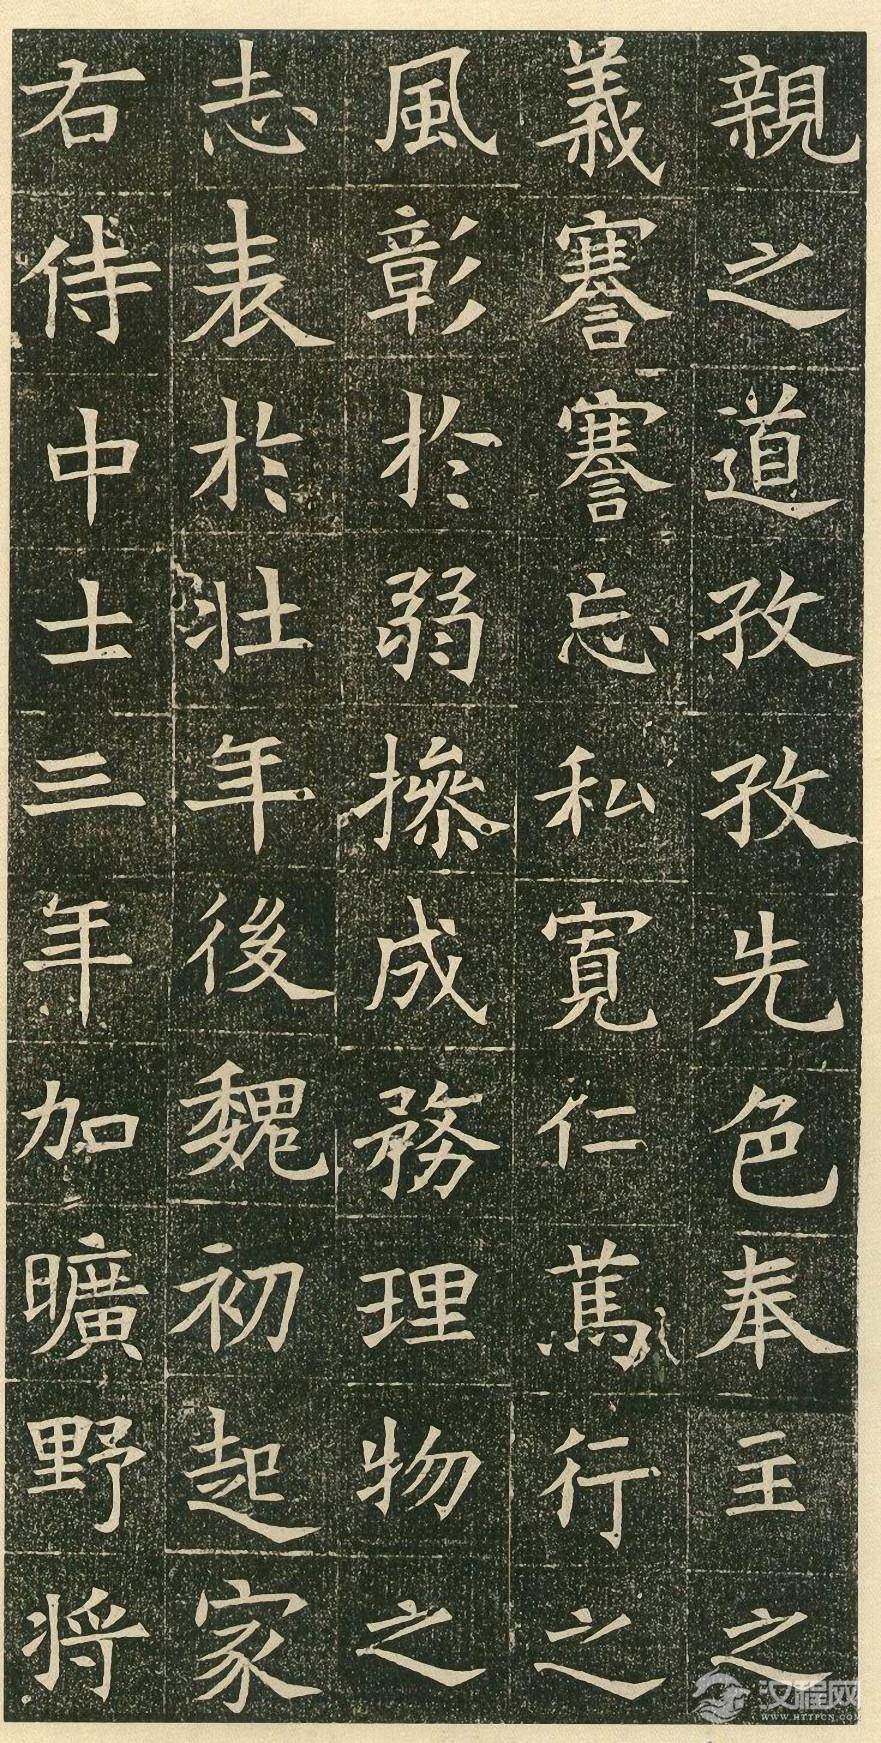 親之道孜孜先色奉主之
義謇謇忘私寬仁蔿行之
風彰於弱摻成務理物之
志表於壯年後魏初起家
右侍中士三年加曠野将
汉程网
WWW.HTTPCN.COM